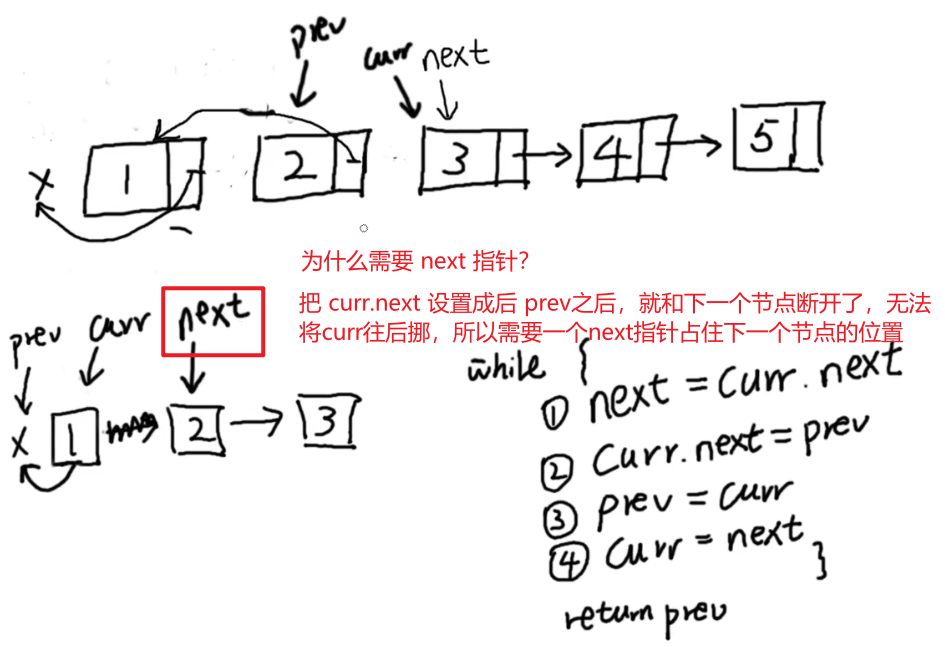 prev
curr next
X 1 2 3 4 5
为什么需要 next 指针?
把 curr.next 设置成后 prev之后，就和下一个节点断开了，无法
将curr往后挪，所以需要一个next指针占住下一个节点的位置
prev curr next
X 1 2 3
while {
① next = curr.next
② Curr.next = prev
③ prev = curr
④ Curr = next
}
return prev